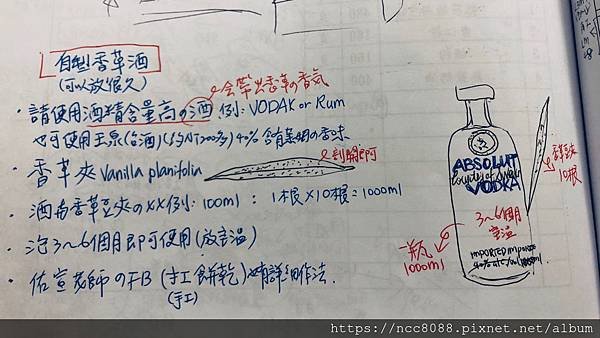 自製香草酒
(可以放很久)
會帶出香草の香氣
・請使用酒精含量高の酒 例:VODAK or Rum
也可使用玉泉(台酒)(約NT200多)40% 含有蔗糖の香味
・香草夾 Vanilla planifolia
剖開即可
・酒與香草豆夾のXX例:100ml : 1根×10根=1000ml
・泡3~6個月即可使用(放室溫)
・佑宣老師のFB (手工餅乾)有詳細作法.
(手工)
ABSOLUT
Country of Sweden
VODKA
3~6個月
室溫
IMPORTED
一瓶
1000ml
10根
https://ncc8088.pixnet.net/album